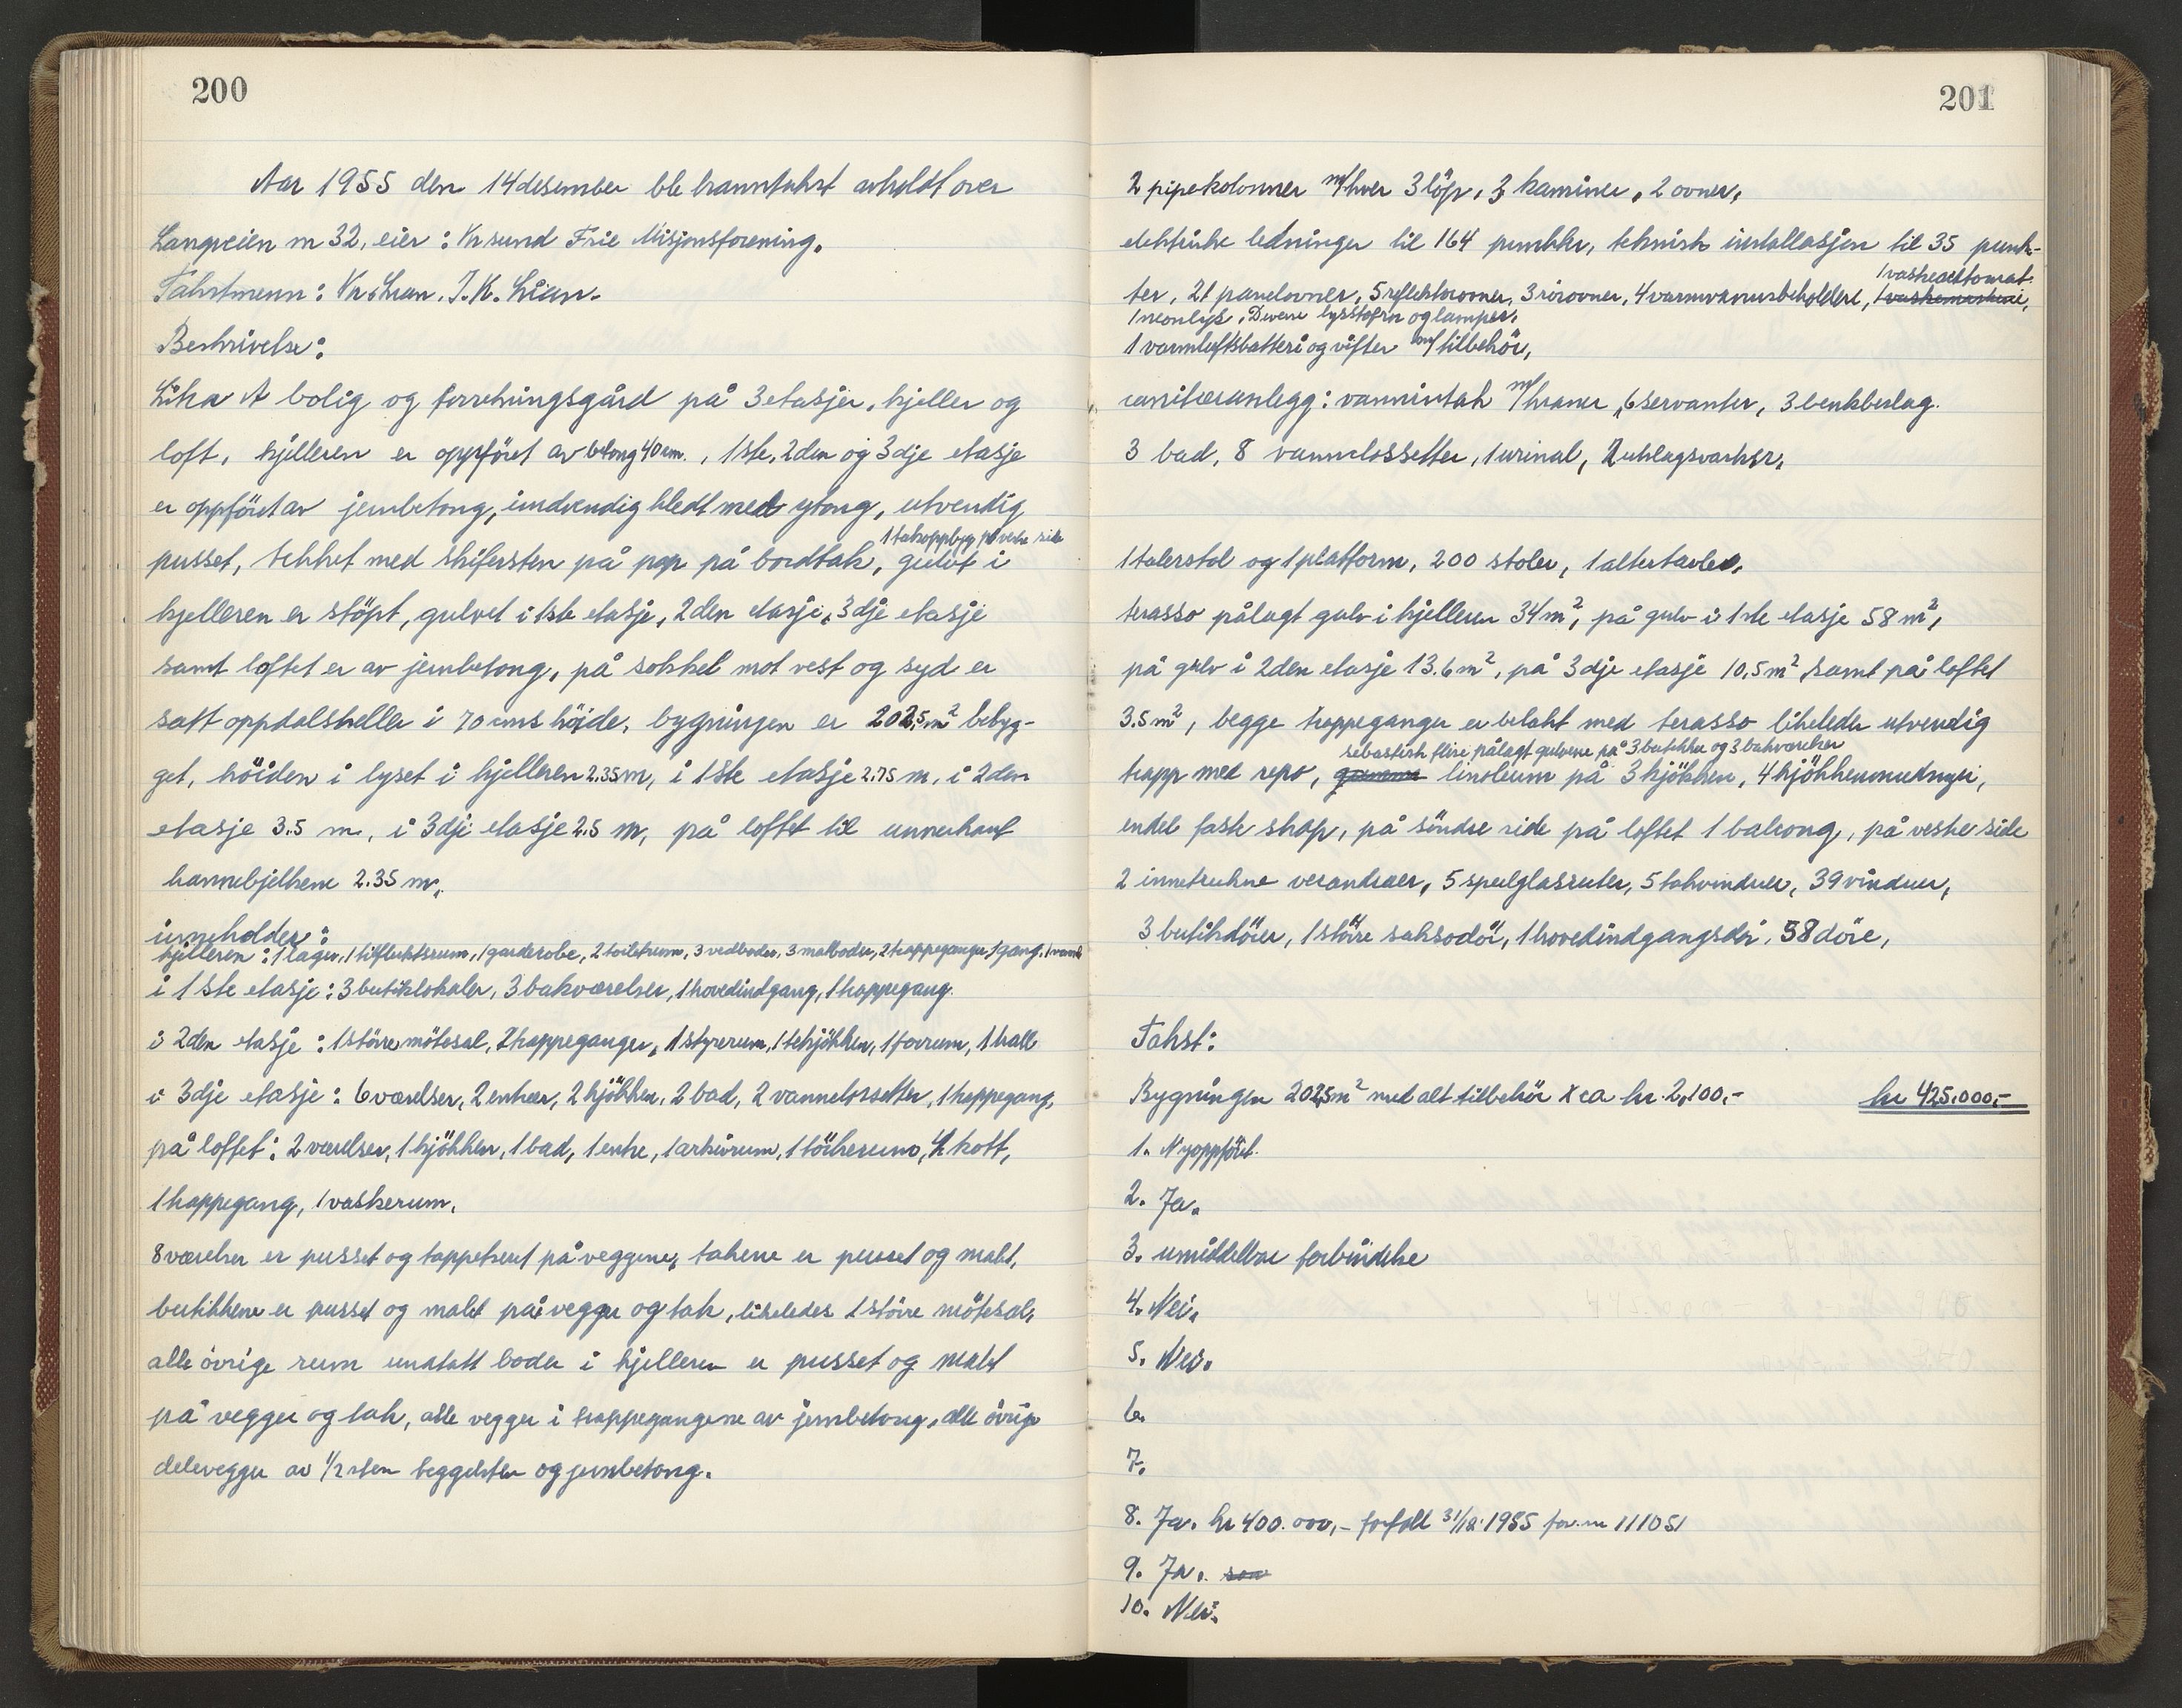 200
Aar 1955 den 14 desember ble branntakst avholdt over
Langveien nr 32, eier: Kr.sund Frie Misjonsforening.
Takstmenn: Kr. Lian. J. K. Lian.
Beskrivelse:
Litra A bolig og forretningsgård på 3 etasjer, kjeller og
loft, kjelleren er oppföret av betong 40 cm., 1ste, 2den og 3dje etasje
er oppföret av jernbetong, indvendig kledt med ytong, utvendig
1 takoppbygg på vestre side
pusset, tekket med skifersten på pap på bordtak, gulvet i
kjelleren er stöpt, gulvet i 1ste etasje, 2den etasje, 3dje etasje
samt loftet er av jernbetong, på sokkel mot vest og syd er
satt oppdalsheller i 70 cms höide, bygningen er 202,5 m² bebyg-
get, höiden i lyset i kjelleren 2.35 m, i 1ste etasje 2.75 m, i 2den
etasje 3.5 m, i 3dje etasje 2.5 m, på loftet til unnerkant
hannebjelkene 2.35 m,
inneholder:
kjelleren: 1 lager, 1 tilfluktsrum, 1 garderobe, 2 toiletrum, 3 vedboder, 3 matboder, 2 trappeganger, 1 gang,
i 1ste etasje: 3 butiklokaler, 3 bakværelser, 1 hovedindgang, 1 trappegang.
i 2den etasje: 1 större mötesal, 2 trappeganger, 1 styrerum, 1 tekjökken, 1 forrum, 1 hall
i 3dje etasje: 6 værelser, 2 entreer, 2 kjökken, 2 bad, 2 vannclossetter, 1 trappegang,
på loftet: 2 værelser, 1 kjökken, 1 bad, 1 entre, 1 arkivrum, 1 törkerum, 4 kott,
1 trappegang, 1 vaskerum,
8 værelser er pusset og tappetsert på veggene, takene er pusset og malt,
butikkene er pusset og malt på vegger og tak, likeledes 1 större mötesal,
alle övrige rum undtatt boder i kjelleren er pusset og malt
på vegger og tak, alle vegger i trappegangene av jernbetong, alle övrige
delevegger av 1/2 sten teggelsten og jernbetong.
201
2 pipekolonner m/hver 3 löp, 3 kaminer, 2 ovner,
elektriske ledninger til 164 punkter, teknisk installasjon til 35 punk-
1 vaskeautomat.
ter, 21 panelovner, 5 reflektorovner, 3 rörovner, 4 varmvannsbeholdere, 1 vaskemaskine,
1 neonlys, Diverse lysstofrör og lamper,
1 varmluftsbatteri og vifter m/tilbehör,
sanitæranlegg: vanninntak m/kraner, 6 servanter, 3 benkbeslag.
3 bad, 8 vannclossetter, 1 urinal, 2 utslagsvasker,
1 talerstol og 1 platform, 200 stoler, 1 altertavle,
terasso pålagt gulv i kjelleren 34 m², på gulv i 1ste etasje 58 m²,
på gulv i 2den etasje 13.6 m², på 3dje etasje 10,5 m² samt på loftet
3.5 m², begge trappeganger er belakt med terasso likeledes utvendig
flise pålagt gulvene på 3 butikker og 3 bakværelser
trapp med repo, linoleum på 3 kjökken, 4 kjökkeninnredninger,
endel faste skap, på söndre side på loftet 1 balkong, på vestre side
2 inntrukne verandaer, 5 speilglasruter, 5 takvinduer, 39 vinduer,
3 butikdörer, 1 större saksodör, 1 hovedindgangsdör, 58 döre,
Takst:
Bygningen 202,5 m² med alt tilbehör x ca kr. 2,100,- kr 425.000,-
1. Nyoppföret.
2. Ja.
3. umiddelbar forbindelse
4. Nei.
5. Nei.
6.
7.
8. Ja. kr 400.000,- forfall 31/12 1955 for. nr 111051
9. Ja.
10. Nei.